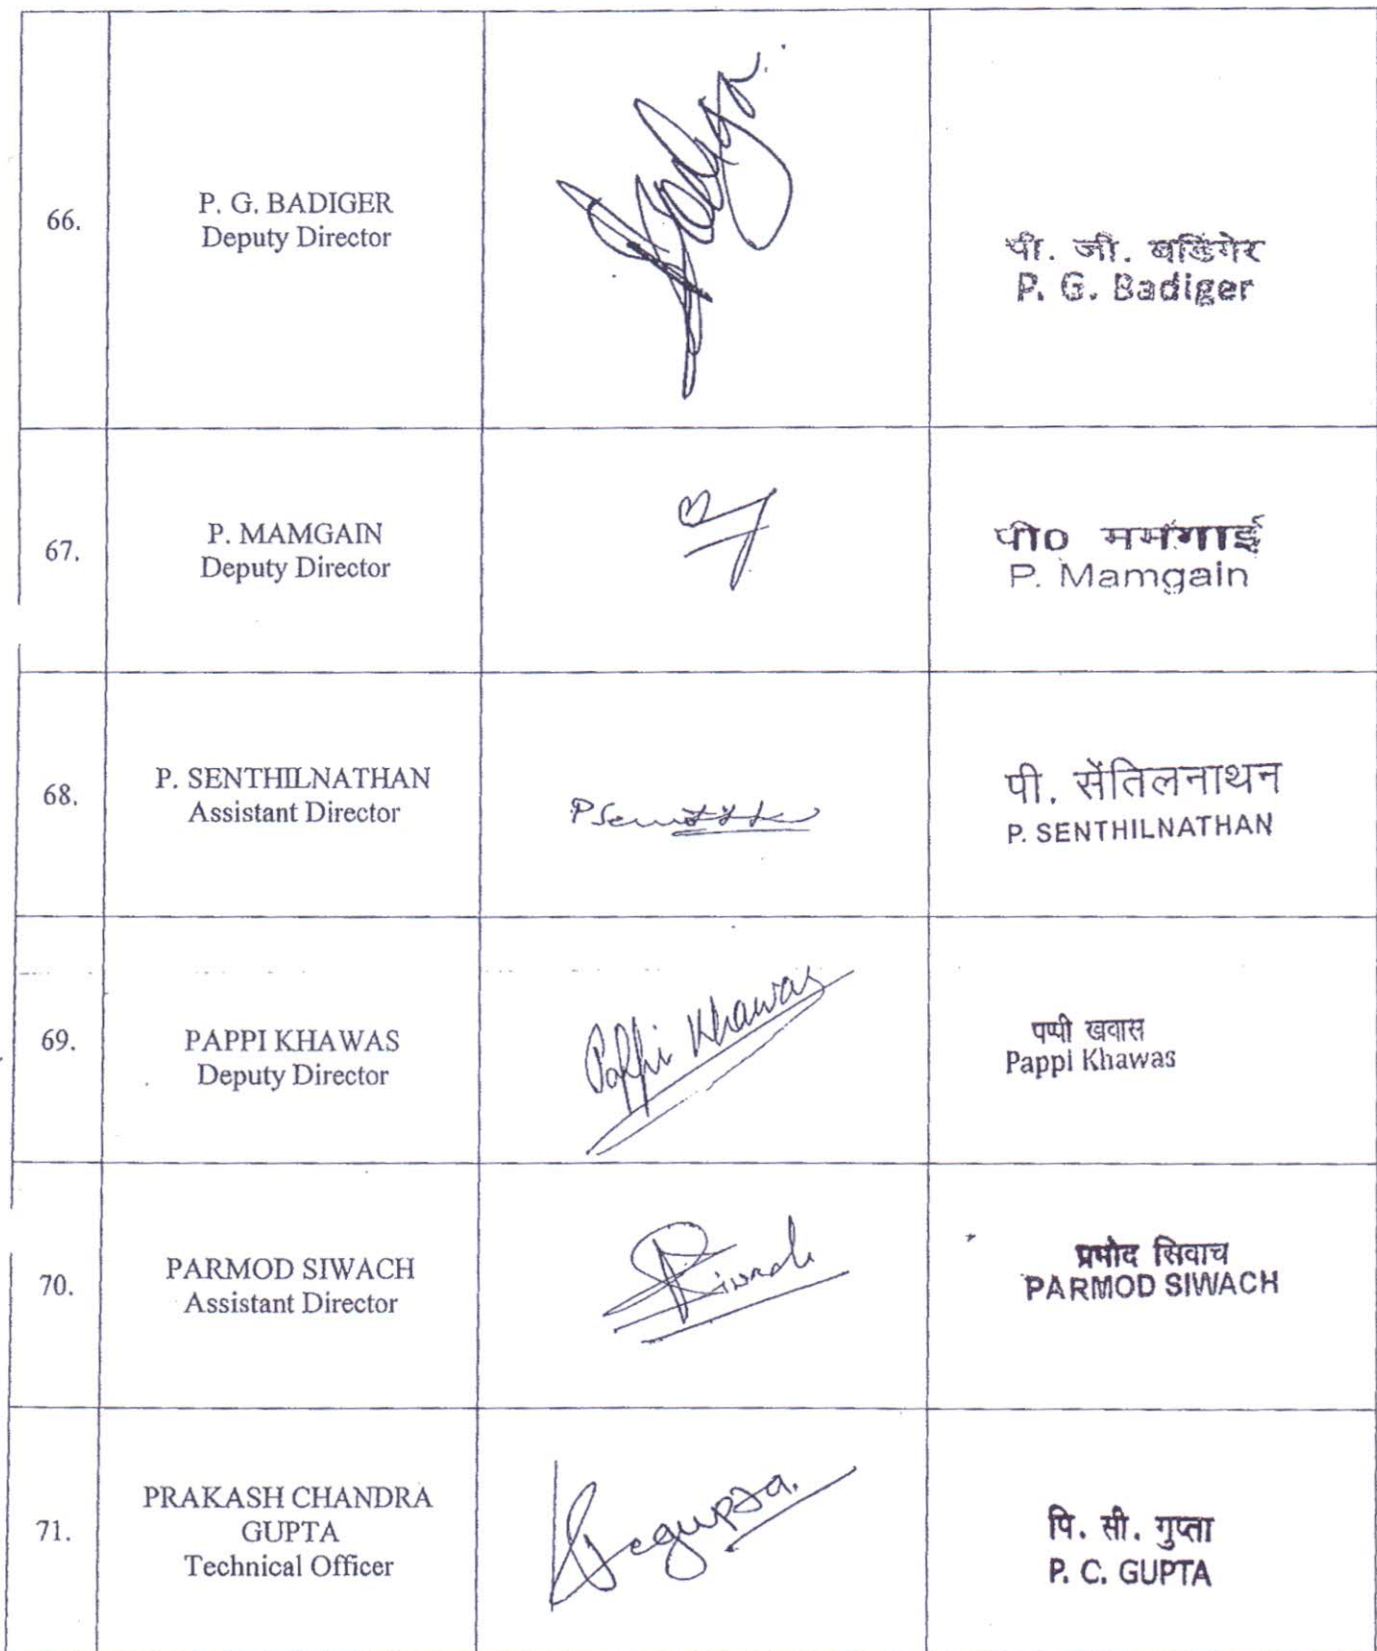 66.
P. G. BADIGER
Deputy Director
पी. जी. बडिगेर
P. G. Badiger
67.
P. MAMGAIN
Deputy Director
पी० ममंगाई
P. Mamgain
68.
P. SENTHILNATHAN
Assistant Director
पी. सेंतिलनाथन
P. SENTHILNATHAN
69.
PAPPI KHAWAS
Deputy Director
Pappi Khawas
पप्पी खवास
Pappi Khawas
70.
PARMOD SIWACH
Assistant Director
Siwach
प्रमोद सिवाच
PARMOD SIWACH
71.
PRAKASH CHANDRA
GUPTA
Technical Officer
Pcgupta.
पि. सी. गुप्ता
P. C. GUPTA